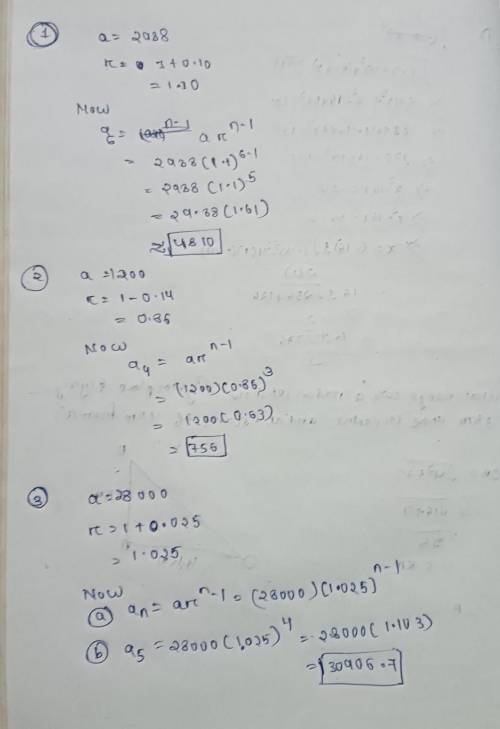 ① a = 2988
r = 1+0.10
= 1.10
Now
a₆ = ar^n-1
= 2988 (1.1)^6-1
= 2988 (1.1)^5
= 29.88 (1.61)
≈ 4810
② a = 1200
r = 1-0.14
= 0.86
Now
a₄ = ar^n-1
= (1200)(0.86)^3
= 1200(0.63)
= 756
③ a = 28000
r = 1+0.025
= 1.025
Now
ⓐ aₙ = ar^n-1 = (28000)(1.025)^n-1
ⓑ a₅ = 28000(1.025)^4 = 28000(1.103)
= 30906.7